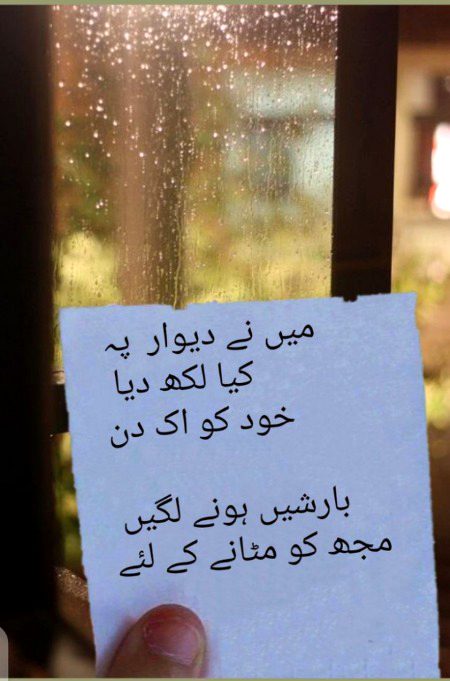 میں نے دیوار پہ
کیا لکھ دیا
خود کو اک دن
بارشیں ہونے لگیں
مجھ کو مٹانے کے لئے